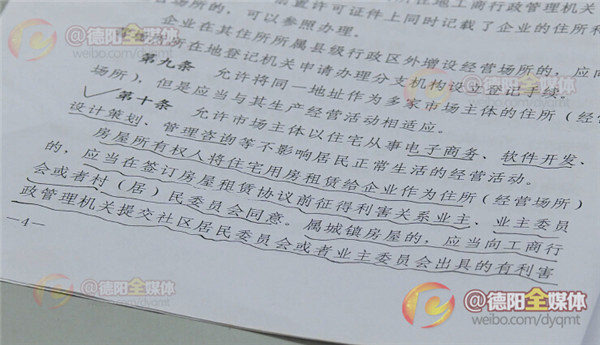 @德阳全媒体
weibo.com/dyqmt
置许可证件上同时记载了企业的住所和
所在地工商行政管理机关
营场所的，可以参照办理。
企业在其住所所属县级行政区外增设经营场所的，应向
所在地登记机关申请办理分支机构设立登记手续。
第九条 允许将同一地址作为多家市场主体的住所（经营
场所），但是应当与其生产经营活动相适应。
第十条 允许市场主体以住宅从事电子商务、软件开发、
设计策划、管理咨询等不影响居民正常生活的经营活动。
房屋所有权人将住宅用房租赁给企业作为住所（经营场所）
的，应当在签订房屋租赁协议前征得利害关系业主、业主委员
会或者村（居）民委员会同意。属城镇房屋的，应当向工商行
政管理机关提交社区居民委员会或者业主委员会出具的有利害
—4—
@德阳全媒体
weibo.com/dyqmt
@德阳全媒体
weibo.com/dyqmt